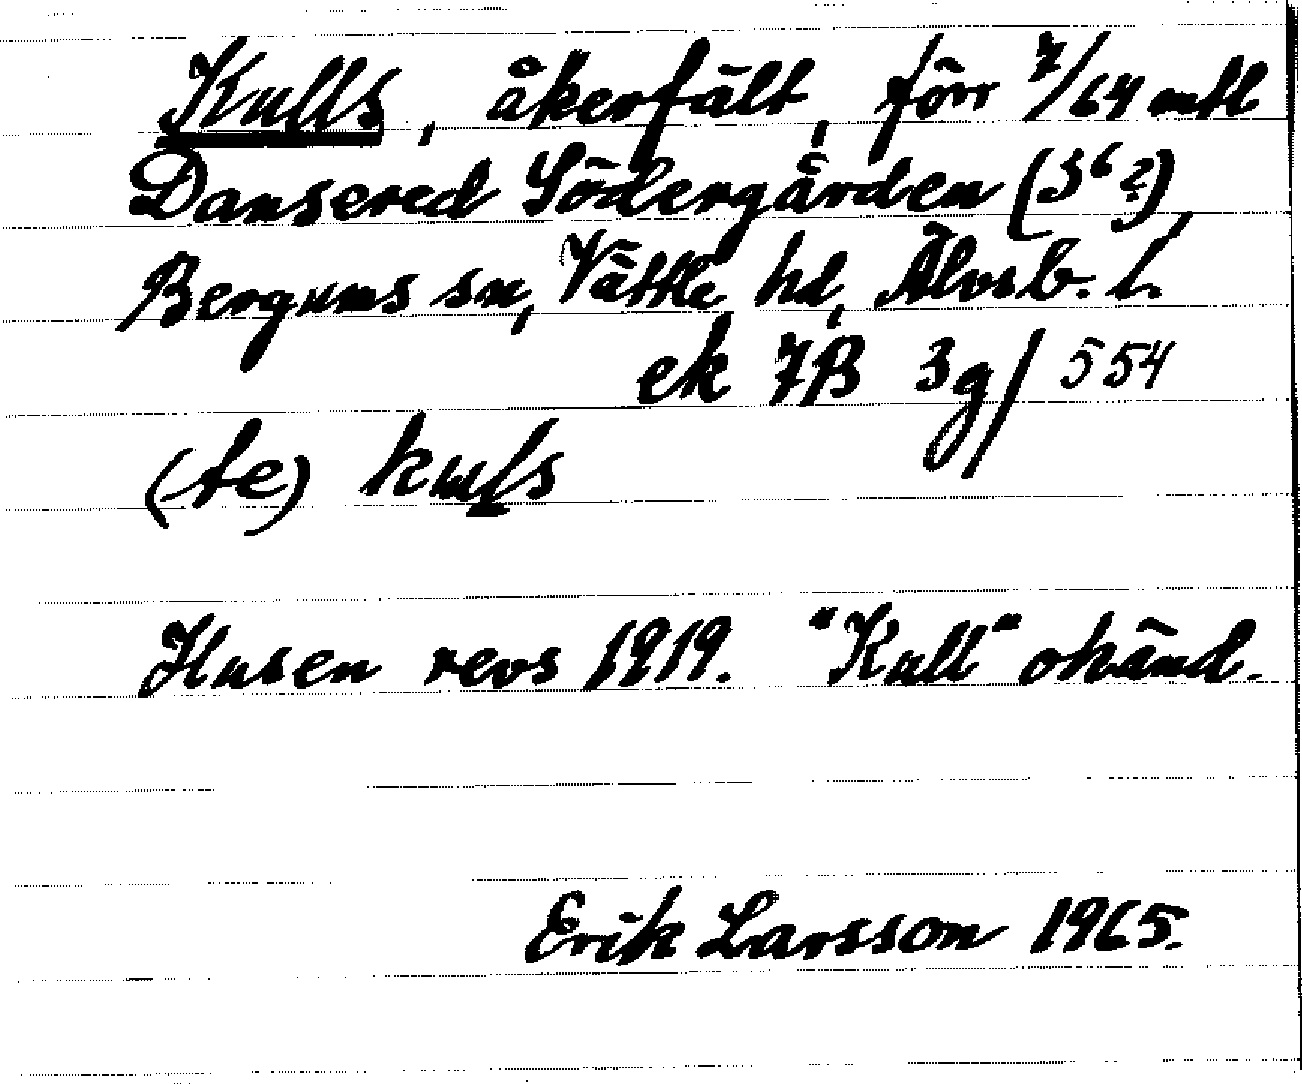 Kulls, åkerfält, förr 7/64 mtl
Dansered Södergården (3⁶?),
Bergums sn, Vättle hd, Älvsb. l.
ek 7B 3g/554
(te) kuls
Husen revs 1919. "Kull" okänd.
Erik Larsson 1965.